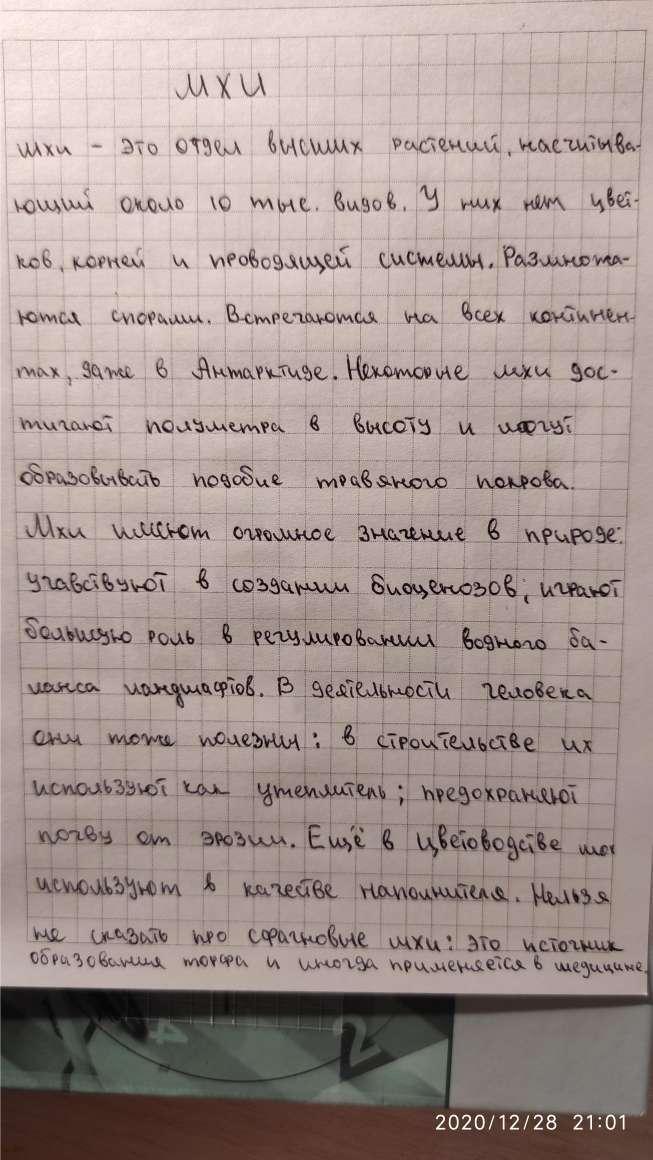 МХИ
Мхи - это отдел высших растений, насчитыва-
ющий около 10 тыс. видов. У них нет цвет-
ков, корней и проводящей системы. Размножа-
ются спорами. Встречаются на всех континен-
тах, даже в Антарктиде. Некоторые мхи дос-
тигают полуметра в высоту и могут
образовывать подобие травяного покрова.
Мхи имеют огромное значение в природе:
учавствуют в создании биоценозов; играют
большую роль в регулировании водного ба-
ланса ландшафтов. В деятельности человека
они тоже полезны: в строительстве их
используют как утеплитель; предохраняют
почву от эрозии. Ещё в цветоводстве мох
используют в качестве наполнителя. Нельзя
не сказать про сфагновые мхи: это источник
образования торфа и иногда применяется в медицине.
4 2
2020/12/28 21:01